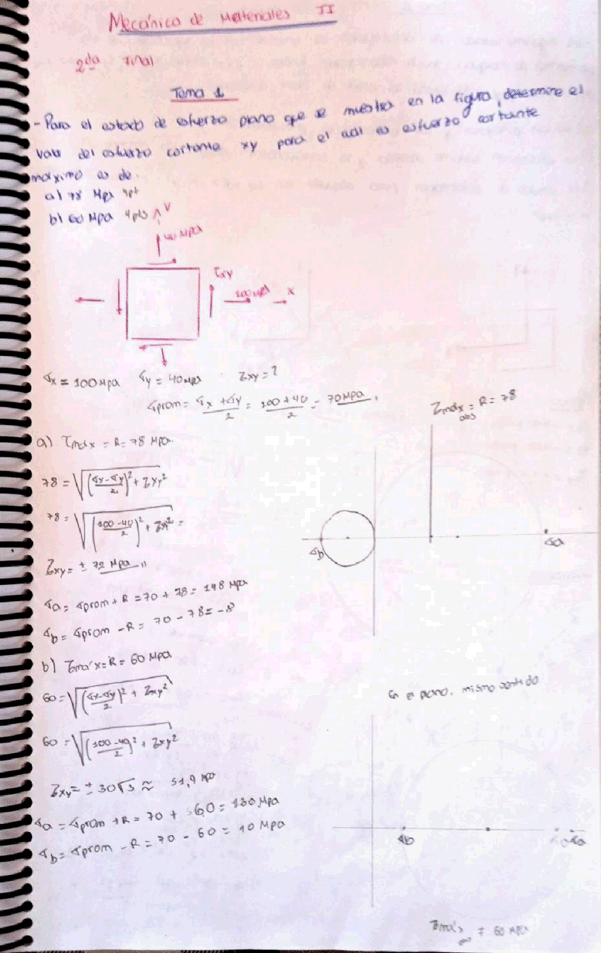 Mecánica de Materiales II
2da Final
Tema 1
- Para el estado de esfuerzo plano que se muestra en la figura, determine el
valor del esfuerzo cortante xy para el cual es esfuerzo cortante
máximo es de.
a) 78 Mpa 4pt
b) 60 Mpa 4pts
Y
40 MPa
τxy
100 MPa
X
σx = 100 MPa σy = 40 MPa τxy = ?
σprom = σx + σy / 2 = 100 + 40 / 2 = 70 MPa
τmáx abs = R = 78
a) τmáx = R = 78 MPa
78 = √((σx - σy / 2)² + τxy²
78 = √((100 - 40 / 2)² + τxy² =
τxy = ± 72 MPa
σa = σprom + R = 70 + 78 = 148 MPa
σb = σprom - R = 70 - 78 = -8
σb
σa
b) τmáx = R = 60 MPa
60 = √((σx - σy / 2)² + τxy²
En el plano. mismo sentido
60 = √((100 - 40 / 2)² + τxy²
τxy = ± 30√3 ≈ 51,9 MPa
σa = σprom + R = 70 + 60 = 130 MPa
σb = σprom - R = 70 - 60 = 10 MPa
σb
σa
τmáx = 60 MPa